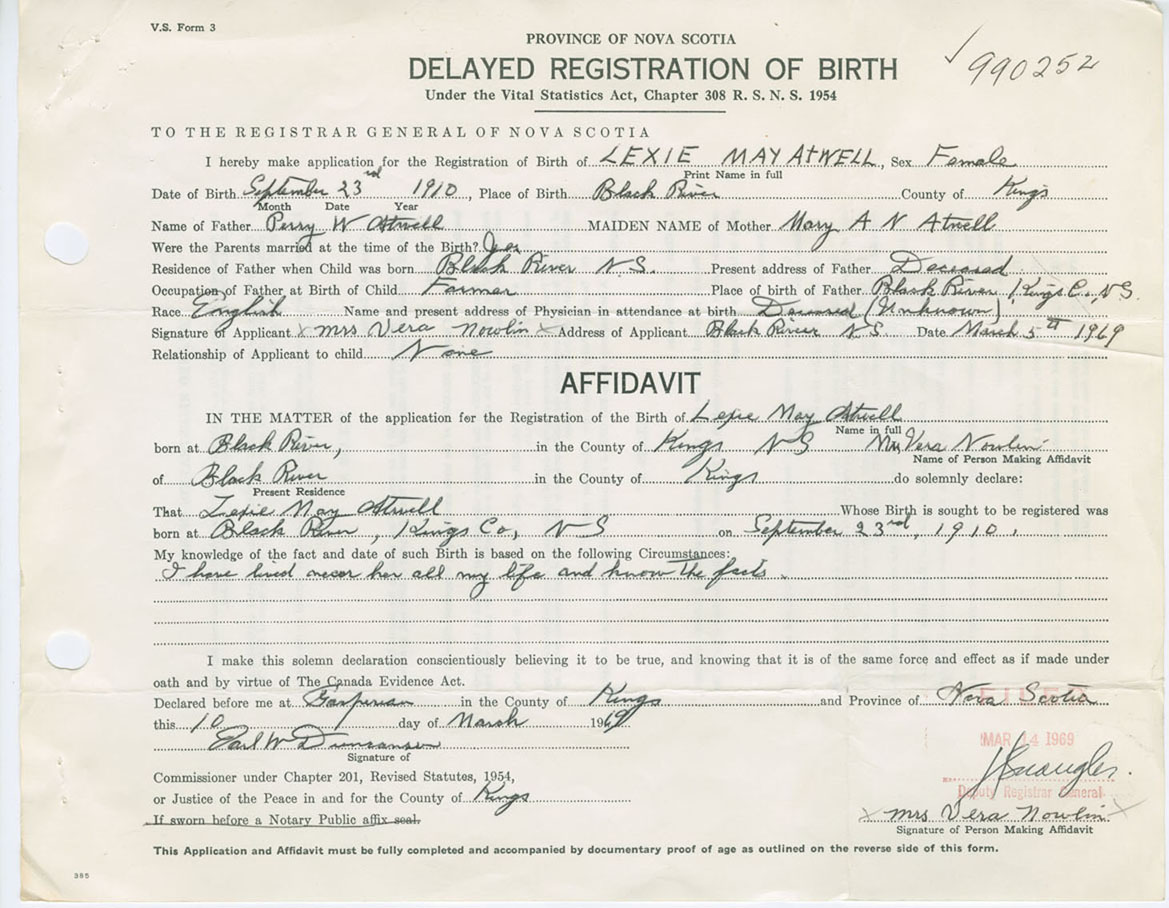 V.S. Form 3
PROVINCE OF NOVA SCOTIA
DELAYED REGISTRATION OF BIRTH
990252
Under the Vital Statistics Act, Chapter 308 R. S. N. S. 1954
TO THE REGISTRAR GENERAL OF NOVA SCOTIA
I hereby make application for the Registration of Birth of LEXIE MAY ATWELL, Sex Female
Print Name in full
Date of Birth September 23rd 1910, Place of Birth Black River County of Kings
Month Date Year
Name of Father Perry W Atwell MAIDEN NAME of Mother Mary A N Atwell
Were the Parents married at the time of the Birth? Yes
Residence of Father when Child was born Black River N.S. Present address of Father Deceased
Occupation of Father at Birth of Child Farmer Place of birth of Father Black River, Kings C. N S.
Race English Name and present address of Physician in attendance at birth Deceased (Unknown)
Signature of Applicant x mrs Vera Nowlin x Address of Applicant Black River N S Date March 5th 1969
Relationship of Applicant to child None
AFFIDAVIT
IN THE MATTER of the application for the Registration of the Birth of Lexie May Atwell
Name in full
born at Black River, in the County of Kings N S Mrs Vera Nowlin
Name of Person Making Affidavit
of Black River in the County of Kings do solemnly declare:
Present Residence
That Lexie May Atwell Whose Birth is sought to be registered was
born at Black River, Kings Co, N S on September 23rd, 1910.
My knowledge of the fact and date of such Birth is based on the following Circumstances:
I have lived near her all my life and know the facts.
I make this solemn declaration conscientiously believing it to be true, and knowing that it is of the same force and effect as if made under
oath and by virtue of The Canada Evidence Act.
Declared before me at Gaspereau in the County of Kings and Province of Nova Scotia
FILED
this 10 day of March 1969
MAR 14 1969
Earl W Duncanson
Signature of
Commissioner under Chapter 201, Revised Statutes, 1954,
or Justice of the Peace in and for the County of Kings
Deputy Registrar General
If sworn before a Notary Public affix seal.
x mrs Vera Nowlin x
Signature of Person Making Affidavit
This Application and Affidavit must be fully completed and accompanied by documentary proof of age as outlined on the reverse side of this form.
385